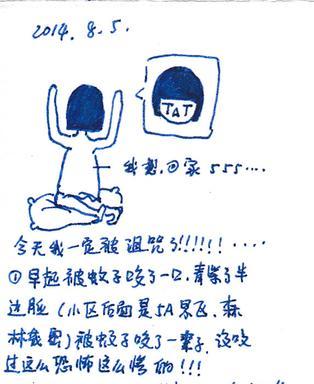 2014. 8. 5.
TAT
我想回家 555....
今天我一定被诅咒了!!!!!! ....
① 早起被蚊子咬了一口,青紫了半
边脸 (小区后面是5A景区、森
林氧吧) 被蚊子咬了一辈子,没咬
过这么恐怖这么惨的!!!